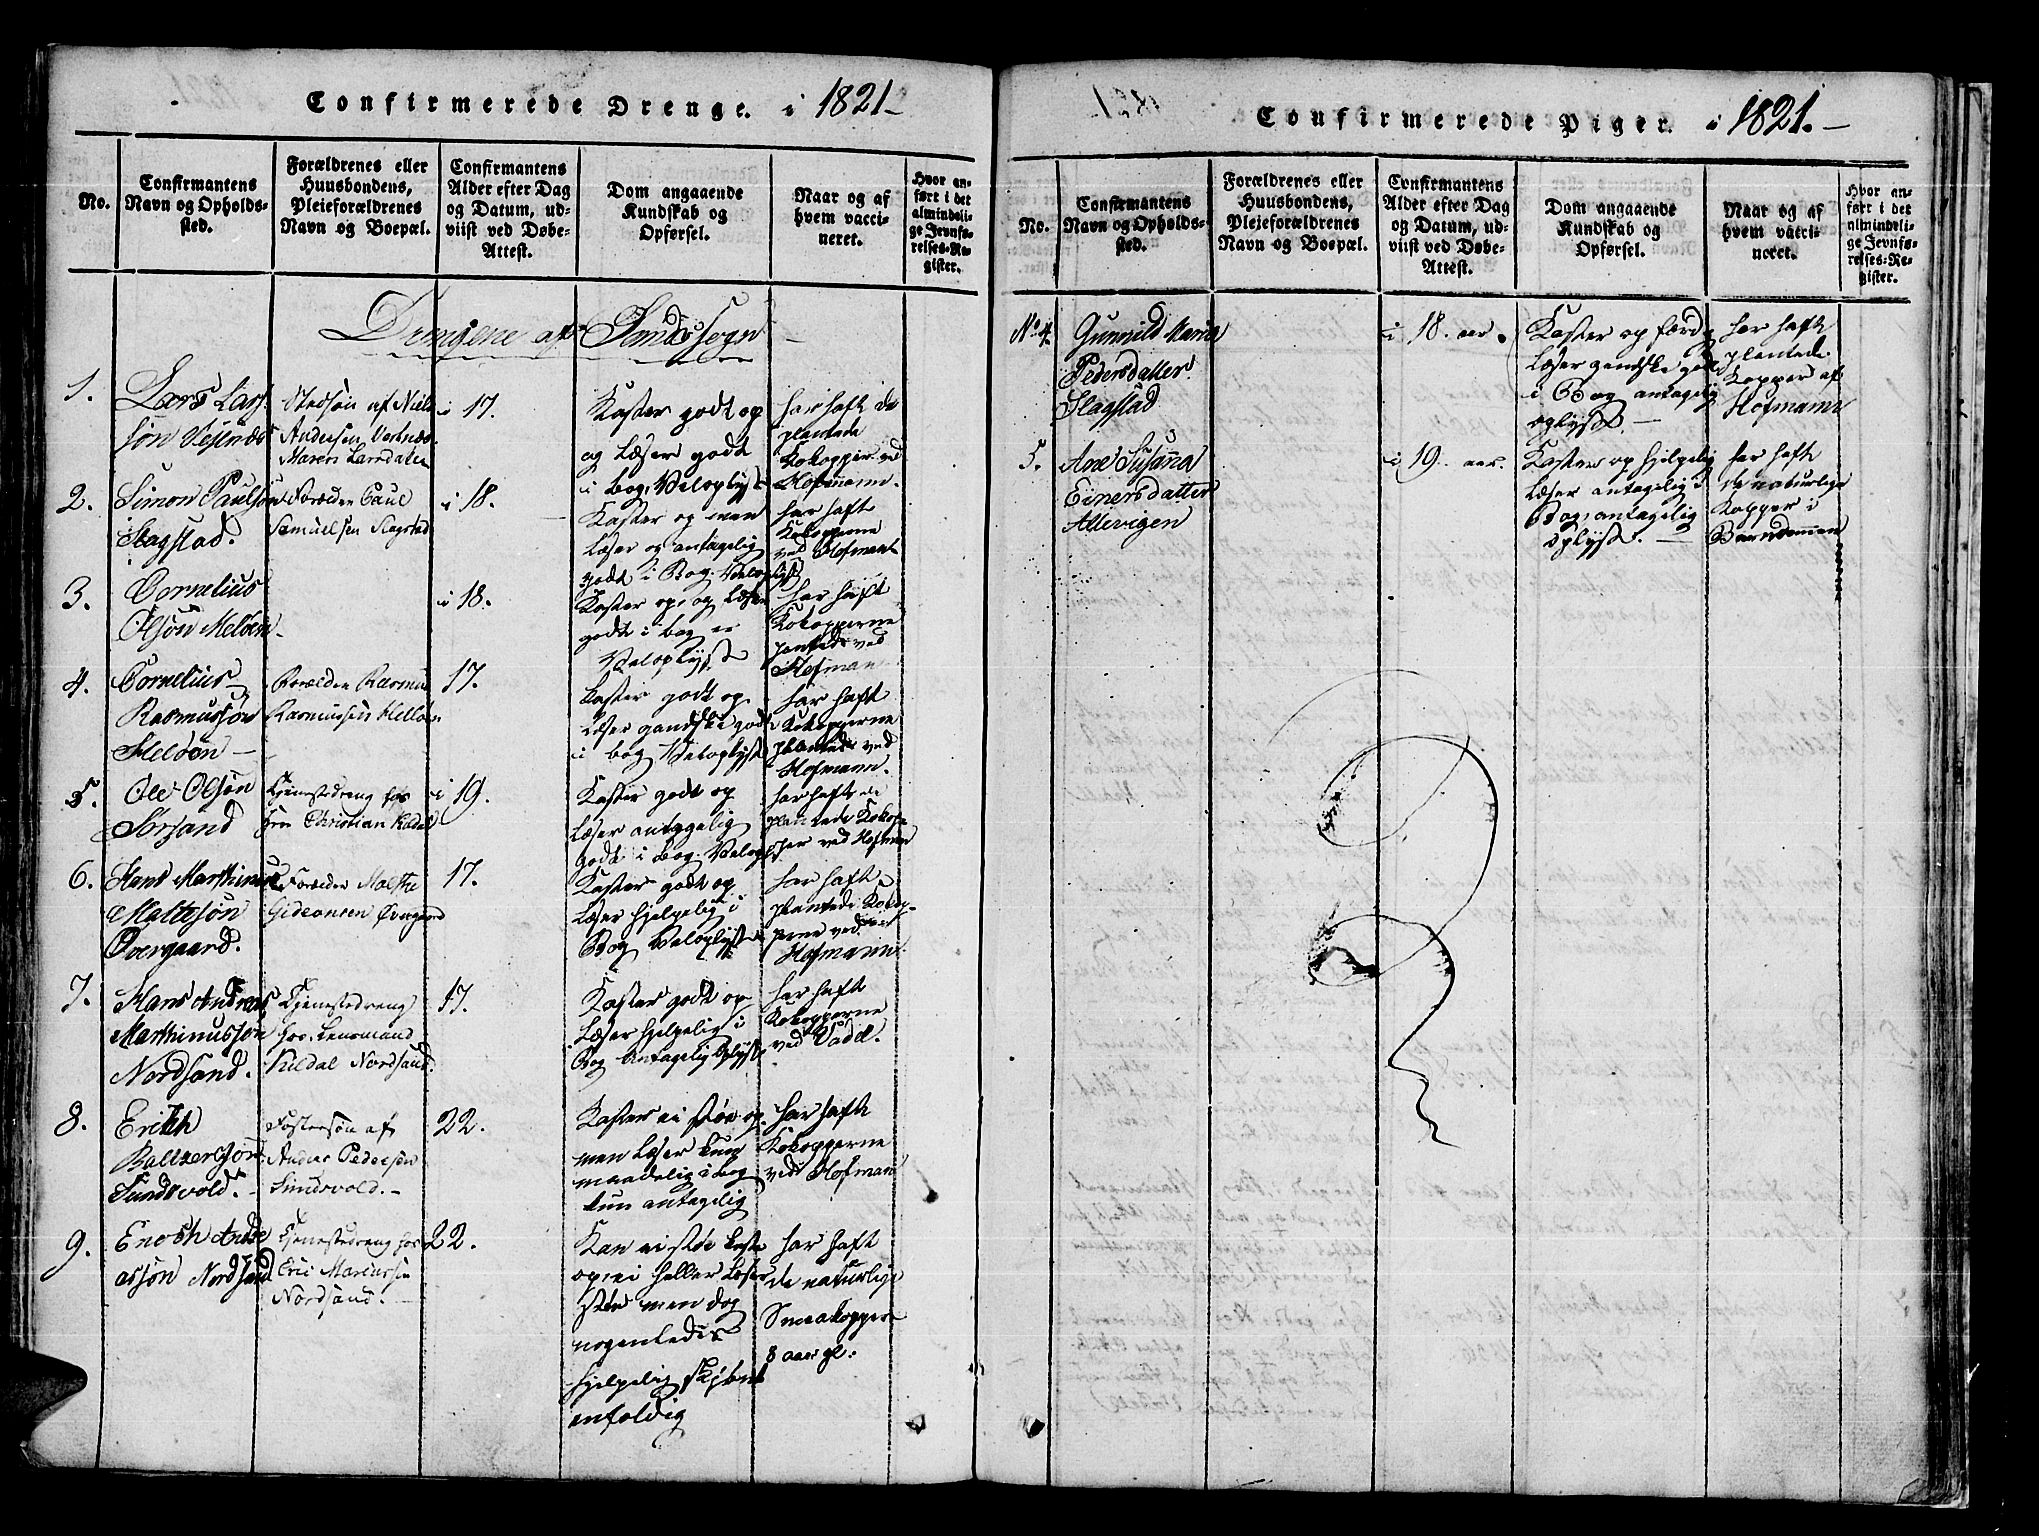 Confirmerede Drenge. i 1821
No.
Confirmantens
Navn og Opholds-
sted.
Forældrenes eller
Huusbondens,
Pleieforældrenes
Navn og Boepæl.
Confirmantens
Alder efter Dag
og Datum, ud-
viist ved Døbe-
Attest.
Dom angaaende
Kundskab og
Opførsel.
Naar og af
hvem vacci-
neret.
Hvor an-
ført i det
almindeli-
ge Jevnfø-
relses-Re-
gister.
Drengene af Sands Sogn
1.
Lars Lar-
søn
Stedsøn af Niels
Andersen
Maren Larsdatter
i 17.
Kaster godt op
og Læser godt
i Bog, Veloplyst
har haft de
plantede
Kokopper ved
Hofmann.
2.
Simon Paulsøn
Slagstad.
Forælder Paul
Samuelsen Slagstad
i 18.
Kaster op men
Læser og antagelig
godt i Bog. Veloplyst
har haft
Kokopperne
ved Hofmann
3.
Cornelius
Olsøn Meløen
i 18.
Kaster op, og Læser
godt i bog er
Veloplyst
har haft
Kokopperne
plantede ved
Hofman
4.
Cornelius
Rasmussøn
Meløen
Forælder Rasmus
Rasmussen Melløen
17.
Kaster godt op
Læser gandske godt
i bog Veloplyst
har haft
Kokopperne
plantede ved
Hofmann.
5.
Ole Olsøn
Sørsand
Tjenestedreng hos
Hrr Christian Kildal
i 19.
Kaster godt op
Læser antagelig
godt i bog. Velop
har haft de
plantede Kokop-
per ved Hofman
6.
Hans Marthinus
Mattesøn
Overgaard.
Forælder
Gideonsen Øvergaard
17.
Kaster godt op
Læser hjelpelig i
Bog Veloplyst
har haft
plantede Kokop-
perne ved
Hofmann
7.
Hans Andreas
Marthinussøn
Nordsand.
Tjenestedreng
hos Lensmand
Kildal Nordsand.
17.
Kaster godt op
Læser hjelpelig i
Bog Antagelig Oplyst
har haft
Kokopperne
ved
8.
Erich
Baltzersøn
Sundsvold.
Fostersøn af
Anders Pedersen
Sundsvold.
22.
Kaster ei støe op
men Læser kun
maadelig i Bog
kun antagelig
har haft
Kokopperne
ved Hofman
9.
Enoch Andre
assøn Nordsand
Tjenestedreng hos
Eric Marcussen
Nordsand.
22.
Kan ei støe kaste
op, ei heller Læse
støe men dog
nogenledes
hjelpelig
enfoldig
har haft
de naturlige
Smaakopper
8 aar gl:
Confirmerede Piger. i 1821.
No.
Confirmantens
Navn og Opholds-
sted.
Forældrenes eller
Huusbondens,
Plejeforældrenes
Navn og Boepæl.
Confirmantens
Alder efter Dag
og Datum, ud-
viist ved Døbe-
Attest.
Dom angaaende
Kundskab og
Opførsel.
Naar og af
hvem vacci-
neret.
Hvor an-
ført i det
almindeli-
ge Jevnfø-
relses-Re-
gister.
No. 4.
Gunnild Maria
Pedersdatter
Slagstad
i 18. aar.
Kaster op færdig
Læser gandske godt
i Bog antagelig
oplyst.
har haft
plantede
Kopper af
Hofmann
5.
Ane Susanna
Einersdatter
Allevigen
i 19. aar.
Kaster op hjelpelig
Læser antagelig i
Bog, antagelig
oplyst.
har haft
de naturlige
Kopper i
Barndommen